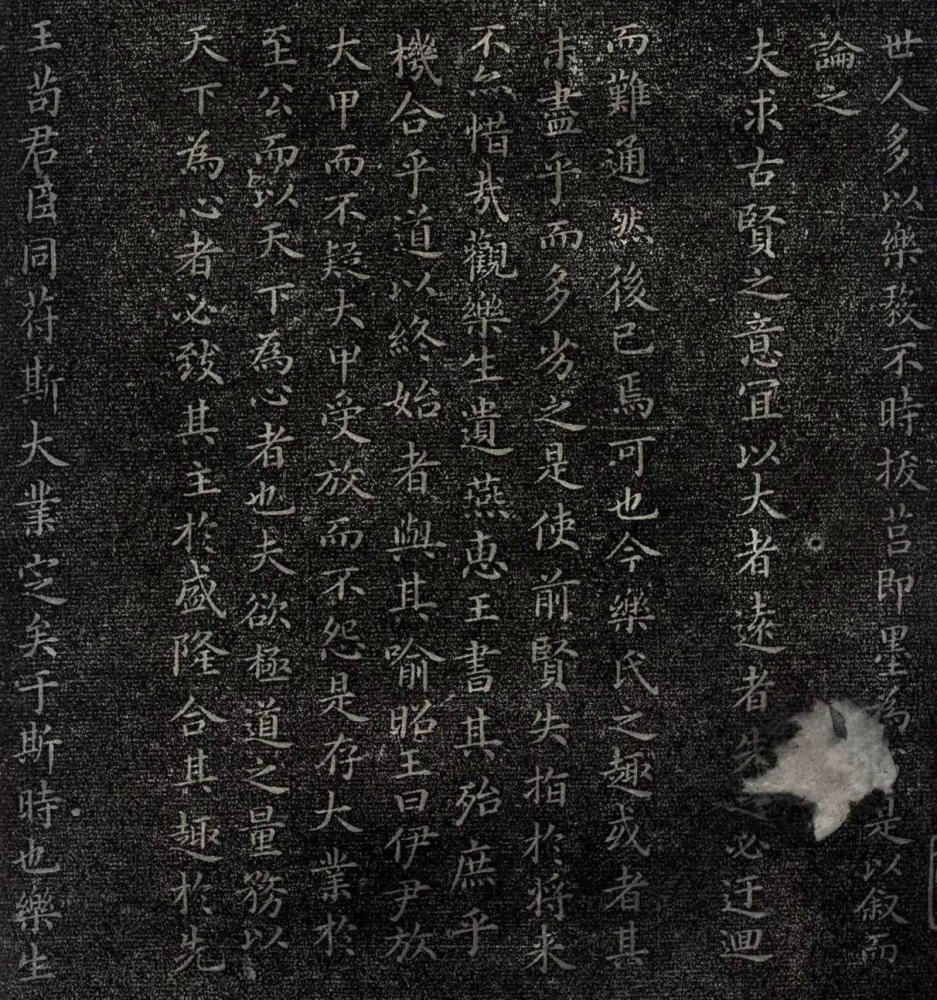 世人多以樂毅不時拔莒即墨為是以叙而
論之
夫求古賢之意宜以大者遠者先之必迂迴
而難通然後已焉可也今樂氏之趣或者其
未盡乎而多劣之是使前賢失指於将来
不亦惜哉觀樂生遺燕惠王書其殆庶乎
機合乎道以終始者與其喻昭王曰伊尹放
大甲而不疑大甲受放而不怨是存大業於
至公而以天下為心者也夫欲極道之量務以
天下為心者必致其主於盛隆合其趣於先
王苟君臣同苻斯大業定矣于斯時也樂生